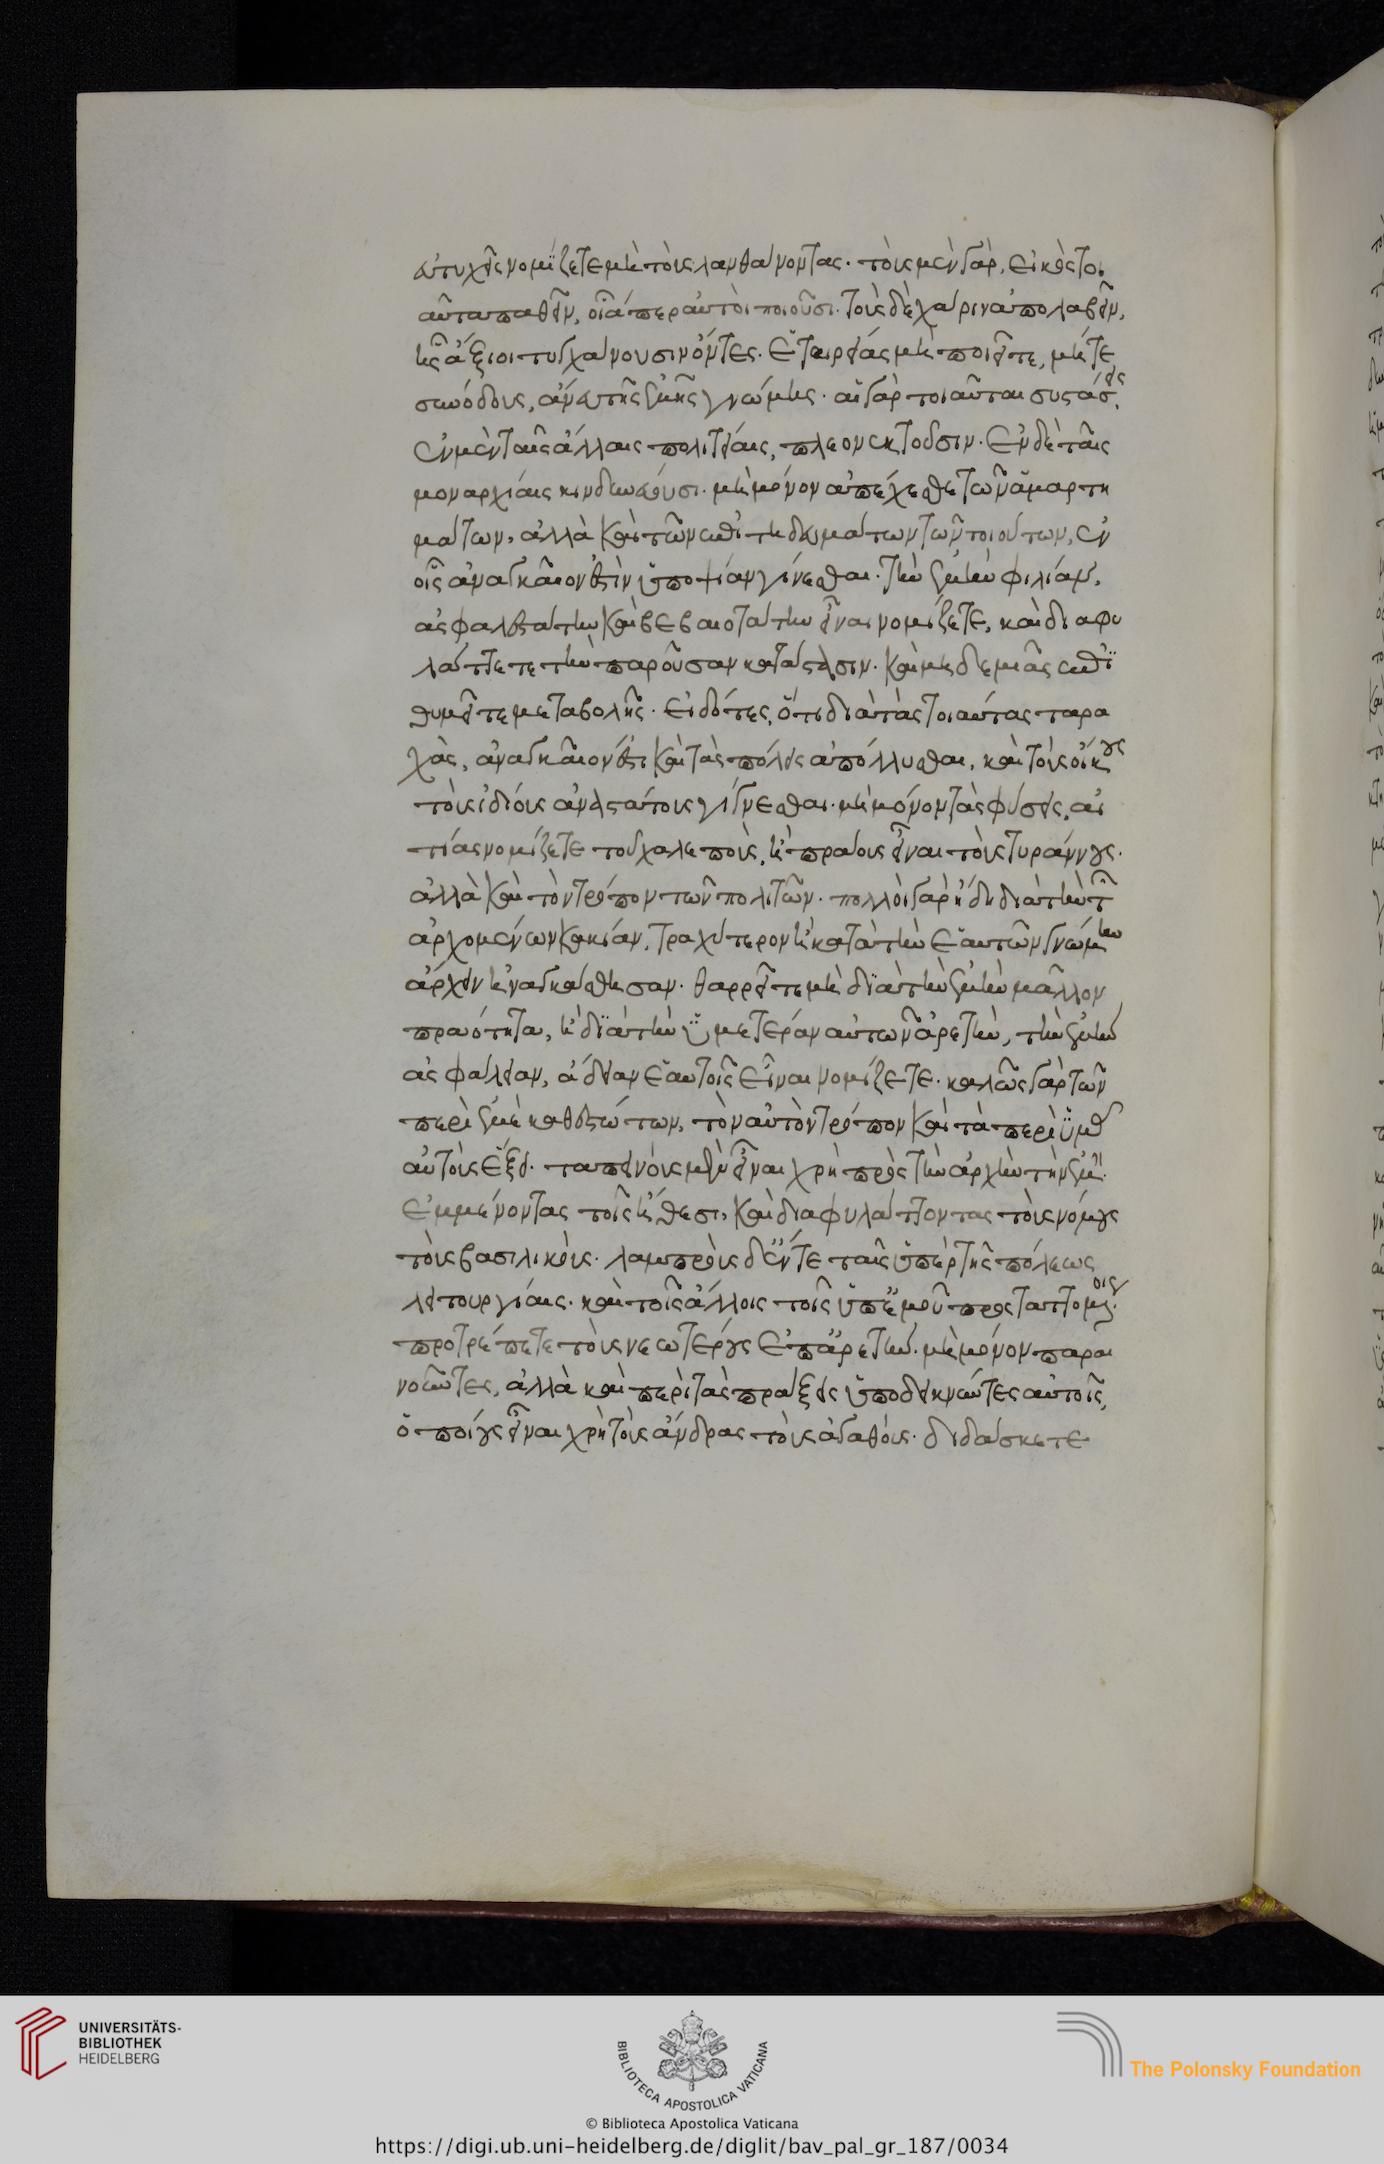 εὐτυχεῖς νομίζετε μὴ τοὺς λανθάνοντας· τοὺς μὲν γὰρ, εἰκὸς τοι
αῦτα παθεῖν, οἷα περ αὐτοὶ ποιοῦσι· τοὺς δὲ χάριν ἀπολαβεῖν,
ἧς ἄξιοι τυγχάνουσιν ὄντες· ἑταιρείας μὴ ποιεῖτε, μήτε
συνόδους, ἄνευ τῆς ἐμῆς γνώμης· αἱ γὰρ τοιαῦται συστάσεις,
ἐν μὲν ταῖς ἄλλαις πολιτείαις, πλεονεκτοῦσιν· ἐν δὲ ταῖς
μοναρχίαις κινδυνεύουσι· μὴ μόνον ἀπέχεσθε τῶν ἁμαρτη
μάτων, ἀλλὰ καὶ τῶν ἐπιτηδευμάτων τῶν τοιούτων, ἐν
οἷς ἀναγκαῖον ἐστὶν ὑποψίαν γίνεσθαι· τὴν ἐμὴν φιλίαν,
ἀσφαλεστάτην καὶ βεβαιοτάτην εἶναι νομίζετε, καὶ διαφυ
λάττετε τὴν παροῦσαν κατάστασιν· καὶ μηδεμιᾶς ἐπι
θυμεῖτε μεταβολῆς· εἰδότες, ὅτι διὰ τὰς τοιαύτας ταρα
χὰς, ἀναγκαῖον ἐστι καὶ τὰς πόλεις ἀπόλλυσθαι, καὶ τοὺς οἴκους
τοὺς ἰδίους ἀναστάτους γίγνεσθαι· μὴ μόνον τὰς φύσεις, αἰ
τίας νομίζετε τοῦ χαλεποὺς, ἢ πράους εἶναι τοὺς τυράννους·
ἀλλὰ καὶ τὸν τρόπον τῶν πολιτῶν· πολλοὶ γὰρ ἤδη διὰ τὴν τῶν
ἀρχομένων κακίαν, τραχύτερον ἢ κατὰ τὴν ἑαυτῶν γνώμην
ἄρχειν ἠναγκάσθησαν· θαρρεῖτε μὴ διὰ τὴν ἐμὴν μᾶλλον
πραότητα, ἢ διὰ τὴν ὑμετέραν αὐτῶν ἀρετήν, τὴν ἐμὴν
ἀσφάλειαν, ἄδειαν ἑαυτοῖς εἶναι νομίζετε· καλῶς γὰρ τῶν
περὶ ἐμὲ καθεστώτων, τὸν αὐτὸν τρόπον καὶ τὰ περὶ ὑμᾶς
αὐτοὺς ἕξει· ταπεινοὺς μὲν εἶναι χρὴ πρὸς τὴν ἀρχὴν τὴν ἐμήν·
ἐμμένοντας τοῖς ἤθεσι, καὶ διαφυλάττοντας τοὺς νόμους
τοὺς βασιλικούς· λαμπροὺς δ' ἔν τε ταῖς ὑπὲρ τῆς πόλεως
λειτουργίαις· καὶ τοῖς ἄλλοις τοῖς ὑπ' ἐμοῦ προσταττομένοις·
προτρέπετε τοὺς νεωτέρους ἐπ' ἀρετήν· μὴ μόνον παραι
νοῦντες, ἀλλὰ καὶ περὶ τὰς πράξεις ὑποδεικνύντες αὐτοῖς,
ὁποίους εἶναι χρὴ τοὺς ἄνδρας τοὺς ἀγαθούς· διδάσκετε
UNIVERSITÄTS-
BIBLIOTHEK
HEIDELBERG
BIBLIOTECA APOSTOLICA VATICANA
The Polonsky Foundation
© Biblioteca Apostolica Vaticana
https://digi.ub.uni-heidelberg.de/diglit/bav_pal_gr_187/0034